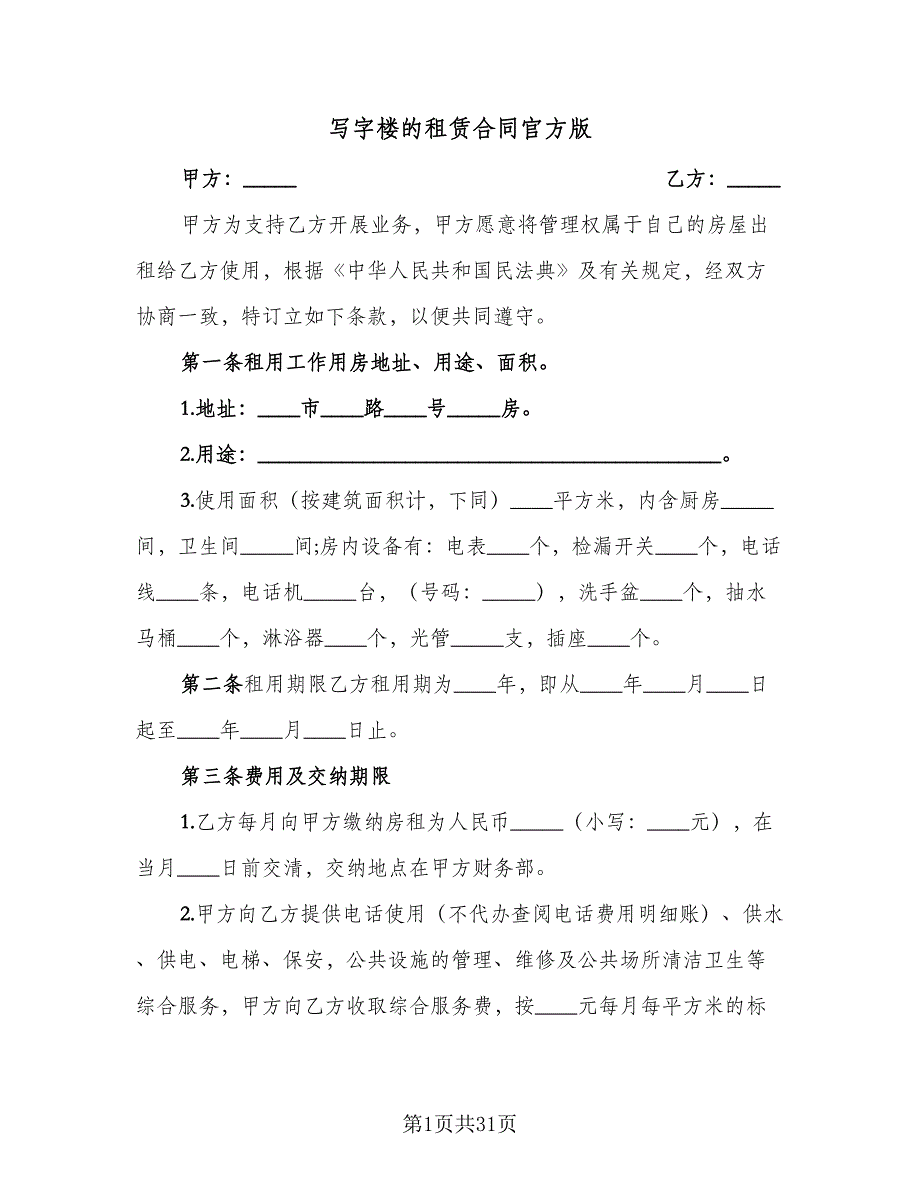 写字楼的租赁合同官方版
甲方：_____ 乙方：_____
甲方为支持乙方开展业务，甲方愿意将管理权属于自己的房屋出
租给乙方使用，根据《中华人民共和国民法典》及有关规定，经双方
协商一致，特订立如下条款，以便共同遵守。
第一条租用工作用房地址、用途、面积。
1.地址：____市____路____号_____房。
2.用途：____________________________________________。
3.使用面积（按建筑面积计，下同）____平方米，内含厨房_____
间，卫生间_____间;房内设备有：电表____个，检漏开关____个，电话
线____条，电话机_____台，（号码：_____），洗手盆____个，抽水
马桶____个，淋浴器____个，光管_____支，插座____个。
第二条租用期限乙方租用期为____年，即从____年____月____日
起至____年____月____日止。
第三条费用及交纳期限
1.乙方每月向甲方缴纳房租为人民币_____（小写：____元），在
当月____日前交清，交纳地点在甲方财务部。
2.甲方向乙方提供电话使用（不代办查阅电话费用明细账）、供水
、供电、电梯、保安，公共设施的管理、维修及公共场所清洁卫生等
综合服务，甲方向乙方收取综合服务费，按____元每月每平方米的标
第1页共31页